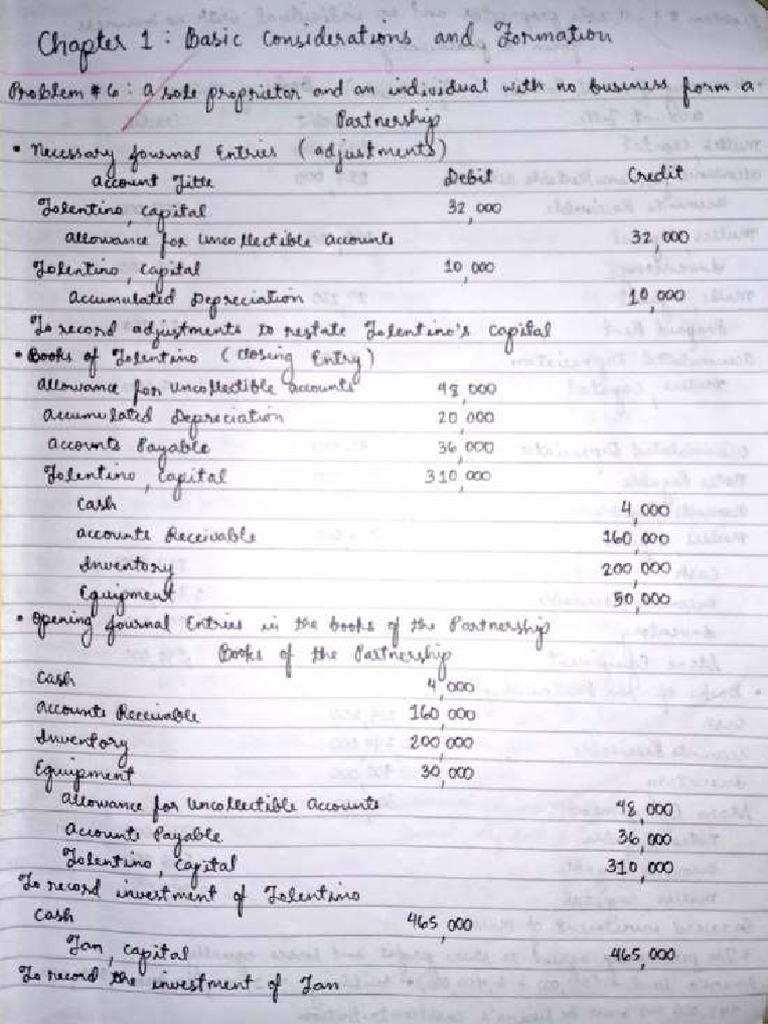 Chapter 1: Basic Considerations and Formation
Problem #6: A sole proprietor and an individual with no business form a
Partnership
• Necessary Journal Entries (adjustments)
Account Title Debit Credit
Tolentino, Capital 32,000
Allowance for Uncollectible Accounts 32,000
Tolentino, Capital 10,000
Accumulated Depreciation 10,000
To record adjustments to restate Tolentino's capital
• Books of Tolentino (Closing Entry)
Allowance for Uncollectible Accounts 48,000
Accumulated Depreciation 20,000
Accounts Payable 36,000
Tolentino, Capital 310,000
Cash 4,000
Accounts Receivable 160,000
Inventory 200,000
Equipment 50,000
• Opening Journal Entries in the books of the Partnership
Books of the Partnership
Cash 4,000
Accounts Receivable 160,000
Inventory 200,000
Equipment 30,000
Allowance for Uncollectible Accounts 48,000
Accounts Payable 36,000
Tolentino, Capital 310,000
To record investment of Tolentino
Cash 465,000
Tan, Capital 465,000
To record the investment of Tan